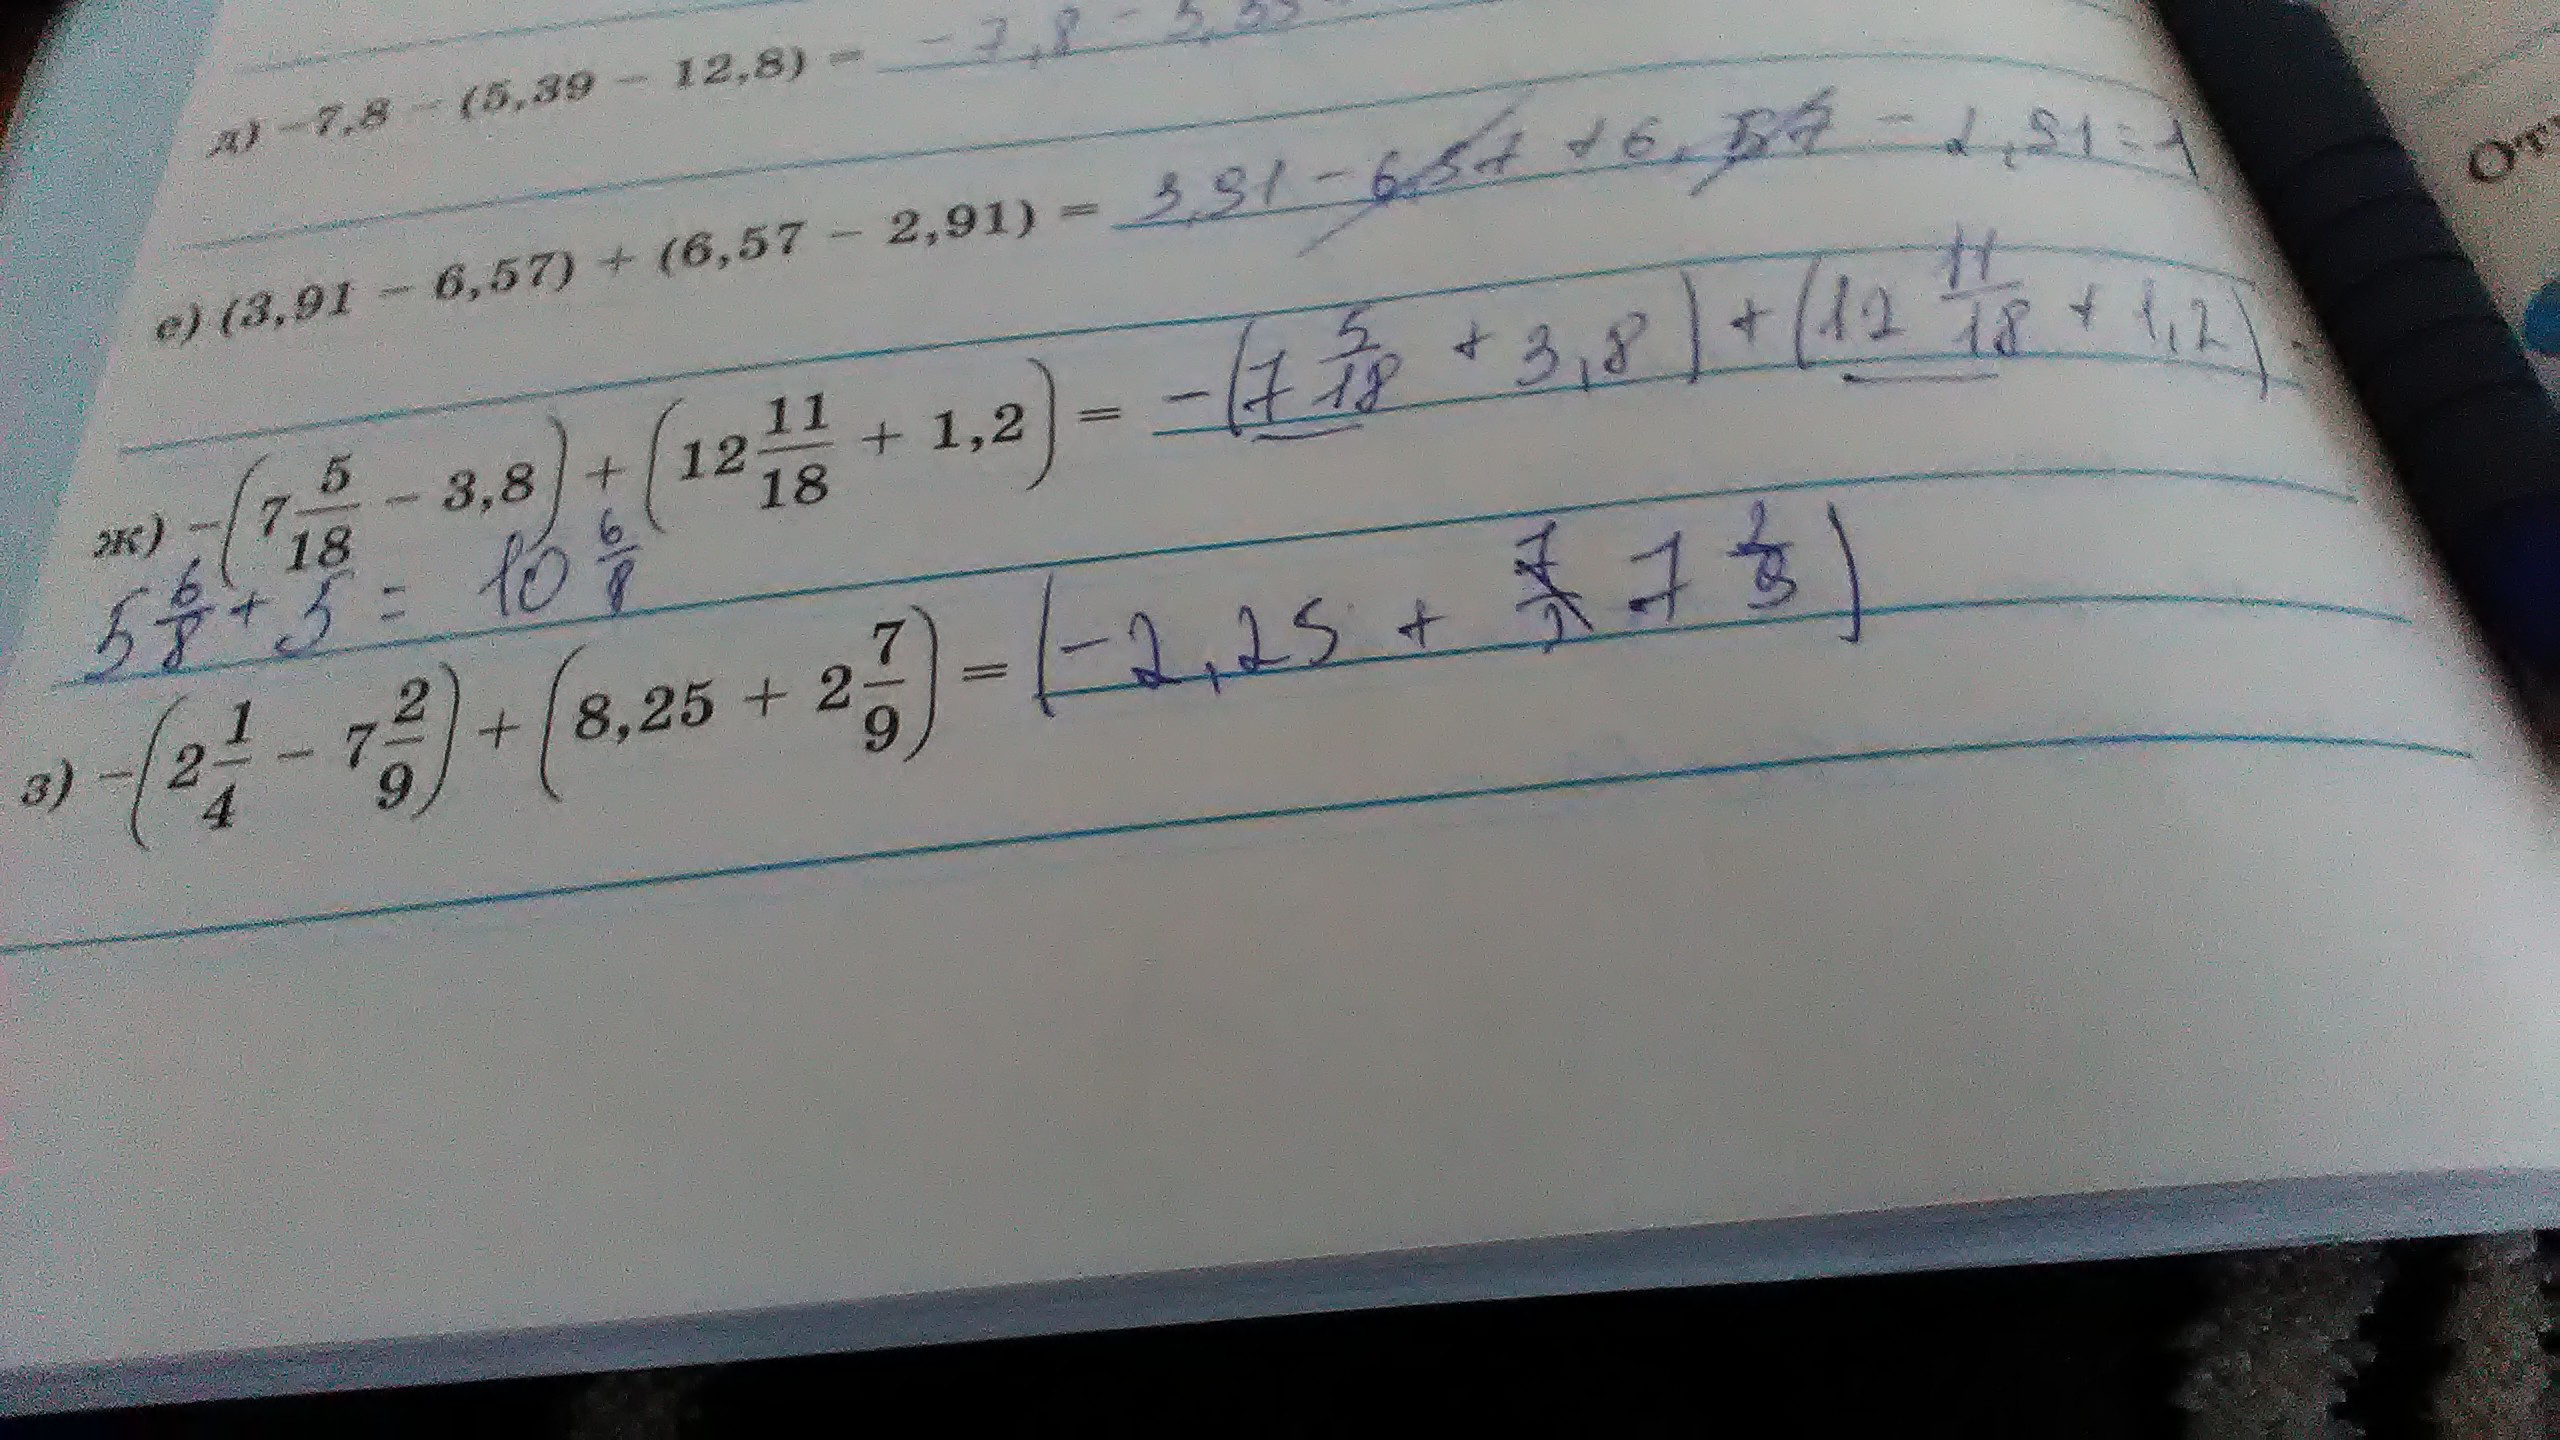 д) −7,8 − (5,39 − 12,8) = −7,8 − 5,39
е) (3,91 − 6,57) + (6,57 − 2,91) = 3,91 − 6,57 + 6,57 − 2,91 = 1
ж) −(7 5/18 − 3,8) + (12 11/18 + 1,2) = −(7 5/18 + 3,8) + (12 11/18 + 1,2)
5 6/8 + 5 = 10 6/8
з) −(2 1/4 − 7 2/9) + (8,25 + 2 7/9) = (−2,25 + 7 2/9)
От